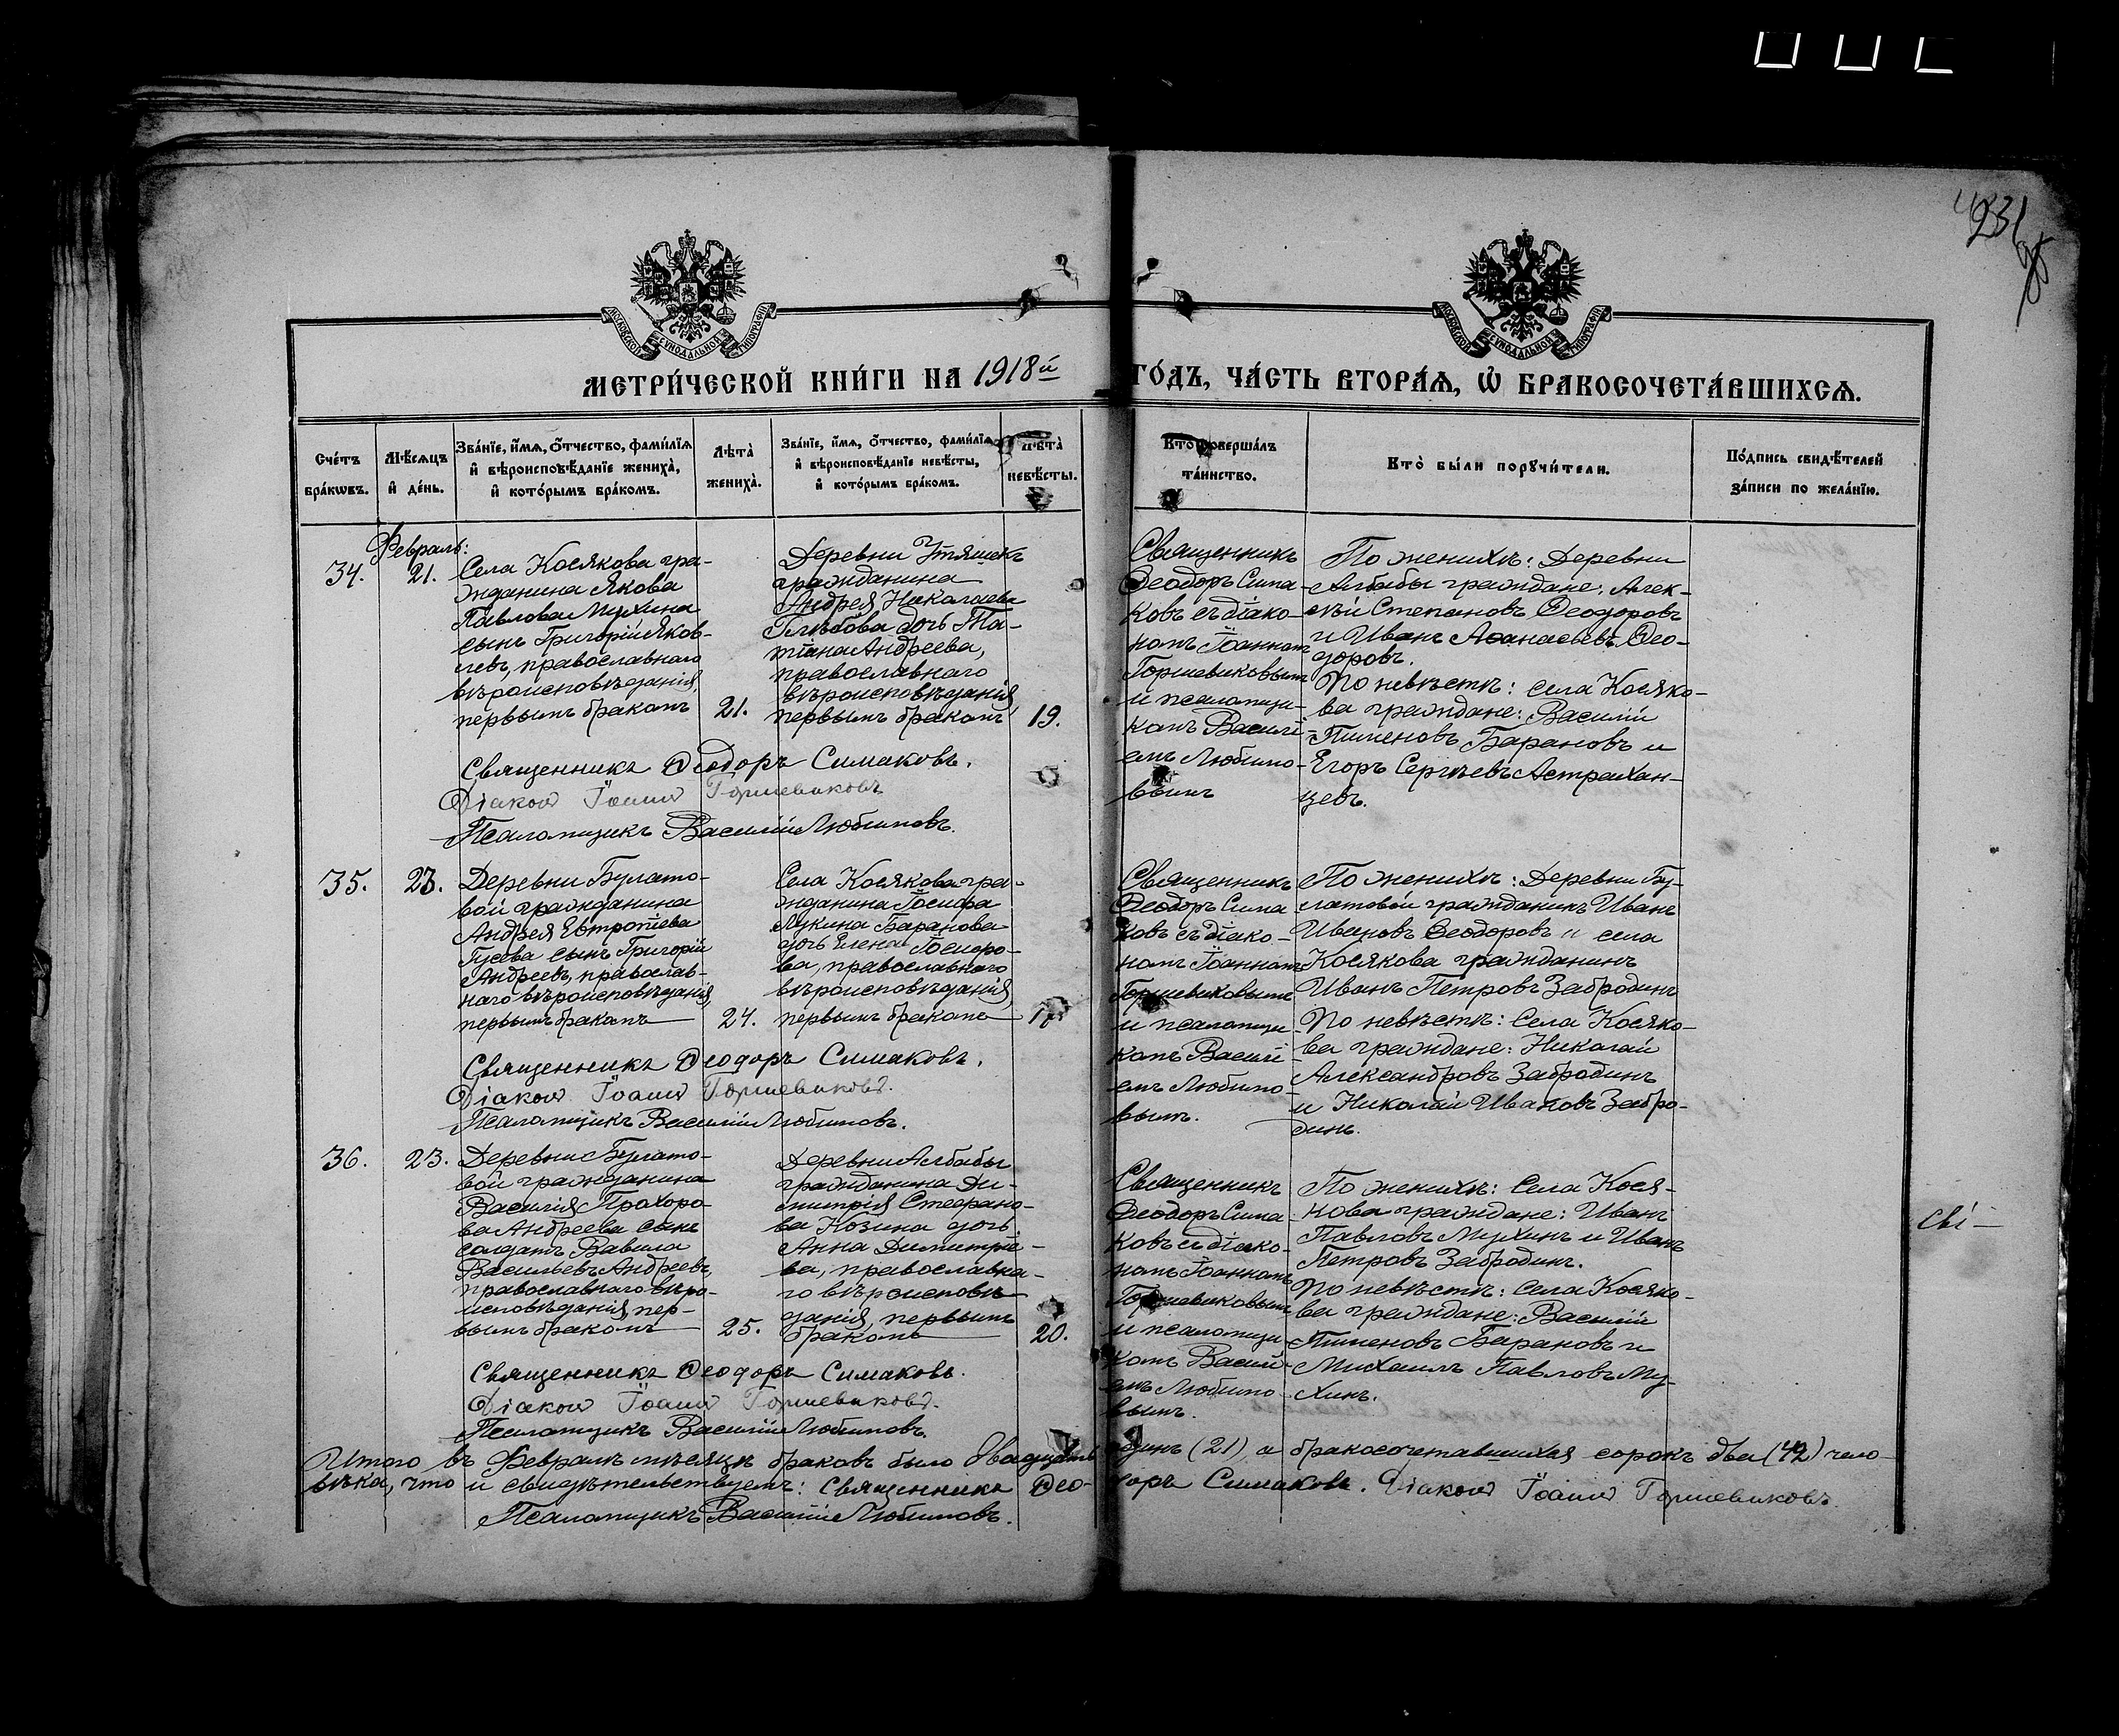 4231
98
МОСКОВСКОЙ СУНОДАЛЬНОЙ ТИПОГРАФІИ
МОСКОВСКОЙ СУНОДАЛЬНОЙ ТИПОГРАФІИ
МЕТРИ́ЧЕСКОЙ КНИ́ГИ НА 1918й ГО́ДЪ, ЧА́СТЬ ВТОРА́Ѧ, Ѡ҆ БРАКОСОЧЕТА́ВШИХСѦ.
Сче́тъ бра́кѡвъ.
Мѣ́сѧцъ и҆ де́нь.
Зва́нїе, и҆́мѧ, ѻ҆́тчество, фами́лїѧ
и҆ вѣроисповѣ́данїе жениха̀,
и҆ кото́рымъ бра́комъ.
Лѣ́та̀ жениха̀.
Зва́нїе, и҆́мѧ, ѻ҆́тчество, фами́лїѧ
и҆ вѣроисповѣ́данїе невѣ́сты,
и҆ кото́рымъ бра́комъ.
Лѣ́та̀ невѣ́сты.
Кто̀ соверша́лъ та́инство.
Кто̀ бы́ли порꙋчи́тели.
По́дпись свидѣ́телей за́писи по жела́нїю.
Февраль:
34.
21.
Села Косякова гра-
жданина Якова
Павлова Мухина
сынъ Григорій Яков-
левъ, православнаго
вѣроисповѣданія,
первымъ бракомъ
21.
Деревни Утяшекъ
гражданина
Андрея Николаева
Глѣбова дочь Та-
тіана Андреева,
православнаго
вѣроисповѣданія
первымъ бракомъ
19.
Священникъ
Ѳеодоръ Сима-
ковъ съ діако-
номъ Іоанномъ
Горшевиковымъ
и псаломщи-
комъ Василі-
емъ Любимо-
вымъ
По женихѣ: Деревни
Албабы граждане: Алек-
сѣй Степановъ Ѳеодоровъ
и Иванъ Аѳанасьевъ Ѳео-
доровъ.
По невѣстѣ: села Косяко-
ва граждане: Василій
Пименовъ Барановъ и
Егоръ Сергѣевъ Астрахан-
цевъ.
Священникъ Ѳеодоръ Симаковъ.
Діаконъ Іоаннъ Горшевиковъ
Псаломщикъ Василій Любимовъ.
35.
23.
Деревни Булато-
вой гражданина
Андрея Евтропіева
Гусева сынъ Григорій
Андреевъ, православ-
наго вѣроисповѣданія,
первымъ бракомъ
24.
Села Косякова гра-
жданина Іосифа
Лукина Баранова
дочь Елена Іосифо-
ва, православнаго
вѣроисповѣданія,
первымъ бракомъ
Священникъ
Ѳеодоръ Сима-
ковъ съ діако-
номъ Іоанномъ
Горшевиковымъ
и псаломщи-
комъ Василі-
емъ Любимо-
вымъ.
По женихѣ: Деревни Бу-
латовой гражданинъ Иванъ
Ивановъ Ѳеодоровъ и села
Косякова гражданинъ
Иванъ Петровъ Забродинъ
По невѣстѣ: Села Косяко-
ва граждане: Николай
Александровъ Забродинъ
и Николай Ивановъ Забро-
динъ.
Священникъ Ѳеодоръ Симаковъ.
Діаконъ Іоаннъ Горшевиковъ.
Псаломщикъ Василій Любимовъ.
36.
23.
Деревни Булато-
вой гражданина
Василія Прохоро-
ва Андреева сынъ
солдатъ Вавила
Васильевъ Андреевъ,
православнаго вѣро-
исповѣданія, пер-
вымъ бракомъ
25.
Деревни Албабы
гражданина Ди-
митрія Стефано-
ва Козина дочь
Анна Димитріе-
ва, православна-
го вѣроисповѣ-
данія, первымъ
бракомъ
20.
Священникъ
Ѳеодоръ Сима-
ковъ съ діако-
номъ Іоанномъ
Горшевиковымъ
и псаломщи-
комъ Василі-
емъ Любимо-
вымъ.
По женихѣ: Села Кося-
кова граждане: Иванъ
Павловъ Мухинъ и Иванъ
Петровъ Забродинъ.
По невѣстѣ: села Косяко-
ва граждане: Василій
Пименовъ Барановъ и
Михаилъ Павловъ Му-
хинъ.
Священникъ Ѳеодоръ Симаковъ.
Діаконъ Іоаннъ Горшевиковъ.
Псаломщикъ Василій Любимовъ.
Итого въ Февралѣ мѣсяцѣ браковъ было двадцать одинъ (21) а бракосочетавшихся сорокъ два (42) чело-
вѣка, что и свидѣтельствуемъ: Священникъ Ѳео-доръ Симаковъ. Діаконъ Іоаннъ Горшевиковъ.
Псаломщикъ Василій Любимовъ.